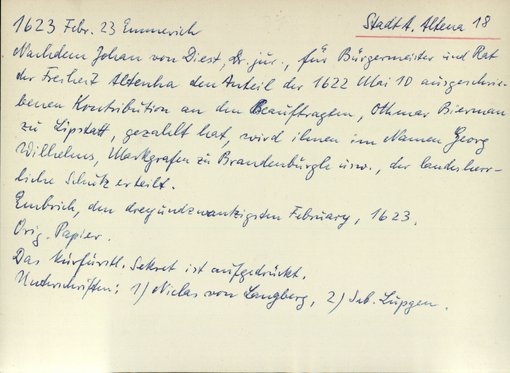 1623 Febr. 23 Emmerich
Stadt A. Altena 18
Nachdem Johan von Diest, Dr. jur., für Bürgermeister und Rat
der Freiheit Altenha den Anteil der 1622 Mai 10 ausgeschrie-
benen Kontribution an den Beauftragten, Othmar Bierman
zu Lipstatt, gezahlt hat, wird ihnen im Namen Georg
Wilhelms, Markgrafen zu Brandenburgk usw., der landesherr-
liche Schutz erteilt.
Embrich, den dreyundzwantzigsten February, 1623.
Orig. Papier.
Das kurfürstl. Sekret ist aufgedrückt.
Unterschriften: 1) Niclas von Langberg, 2) Seb. Lüpgen.